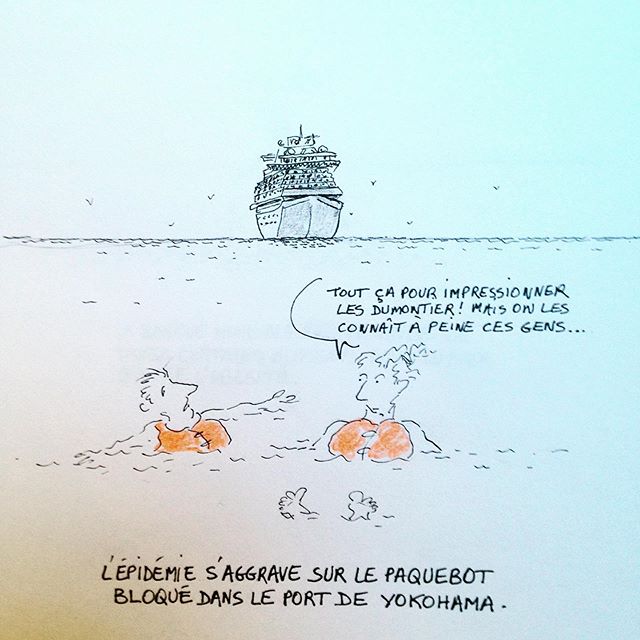 TOUT ÇA POUR IMPRESSIONNER
LES DUMONTIER! MAIS ON LES
CONNAÎT A PEINE CES GENS...
L'ÉPIDÉMIE S'AGGRAVE SUR LE PAQUEBOT
BLOQUÉ DANS LE PORT DE YOKOHAMA.